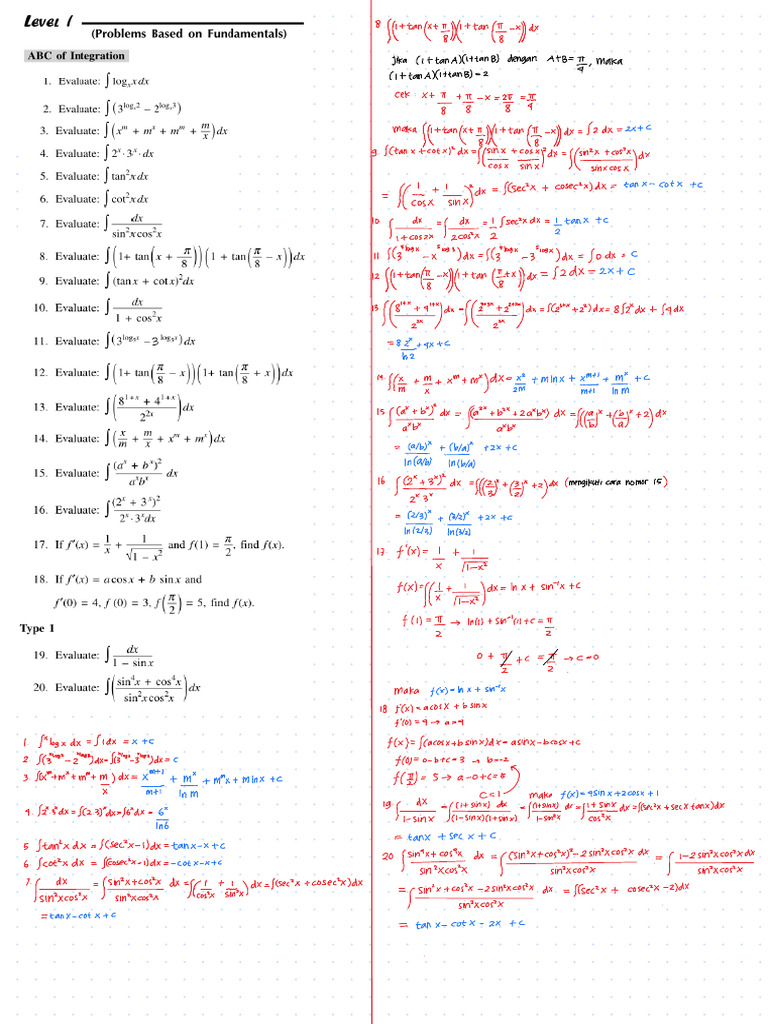 Level 1
(Problems Based on Fundamentals)
ABC of Integration
1. Evaluate: ∫ logₓ x dx
2. Evaluate: ∫ (3^(logₓ2) − 2^(logₓ3))
3. Evaluate: ∫ (x^m + m^x + m^m + m/x) dx
4. Evaluate: ∫ 2^x · 3^x · dx
5. Evaluate: ∫ tan²x dx
6. Evaluate: ∫ cot²x dx
7. Evaluate: ∫ dx/(sin²x cos²x)
8. Evaluate: ∫ (1 + tan(x + π/8))(1 + tan(π/8 − x)) dx
9. Evaluate: ∫ (tan x + cot x)² dx
10. Evaluate: ∫ dx/(1 + cos²x)
11. Evaluate: ∫ (3^(log₅x) − 3^(log₅x)) dx
12. Evaluate: ∫ (1 + tan(π/8 − x))(1 + tan(π/8 + x)) dx
13. Evaluate: ∫ ((8^(1+x) + 4^(1+x))/2^(2x)) dx
14. Evaluate: ∫ (x/m + m/x + x^m + m^x) dx
15. Evaluate: ∫ (a^x + b^x)²/(a^x b^x) dx
16. Evaluate: ∫ (2^x + 3^x)²/(2^x · 3^x dx)
17. If f′(x) = 1/x + 1/√(1 − x²) and f(1) = π/2, find f(x).
18. If f′(x) = a cos x + b sin x and
f′(0) = 4, f(0) = 3, f(π/2) = 5, find f(x).
Type 1
19. Evaluate: ∫ dx/(1 − sin x)
20. Evaluate: ∫ ((sin⁴x + cos⁴x)/(sin²x cos²x)) dx
1 ∫ ˣlog x dx = ∫ 1 dx = x + c
3 ∫ (x^m + m^x + m^m + m/x) dx = x^(m+1)/(m+1) + m^x/ln m + m^m x + m ln x + c
4. ∫ 2^x 3^x dx = ∫ (2.3)^x dx = ∫ 6^x dx = 6^x/ln 6
5 ∫ tan²x dx = ∫ (sec²x − 1) dx = tan x − x + c
6 ∫ cot²x dx = ∫ (cosec²x − 1) dx = −cot x − x + c
7. ∫ dx/(sin²x cos²x) = ∫ (sin²x + cos²x)/(sin²x cos²x) dx = ∫ (1/cos²x + 1/sin²x) dx = ∫ (sec²x + cosec²x) dx
= tan x − cot x + c
8 ∫ (1 + tan(x + π/8))(1 + tan(π/8 − x)) dx
jika (1 + tan A)(1 + tan B) dengan A + B = π/4, maka
(1 + tan A)(1 + tan B) = 2
cek : x + π/8 + π/8 − x = 2π/8 = π/4
maka ∫ (1 + tan(x + π/8))(1 + tan(π/8 − x)) dx = ∫ 2 dx = 2x + c
9. ∫ (tan x + cot x)² dx = ∫ (sin x/cos x + cos x/sin x)² dx = ∫ ((sin²x + cos²x)/(sin x cos x))² dx
= ∫ (1/cos x + 1/sin x)² dx = ∫ (sec²x + cosec²x) dx = tan x − cot x + c
10. ∫ dx/(1 + cos 2x) = ∫ dx/(2cos²x) = 1/2 ∫ sec²x dx = 1/2 tan x + c
12 ∫ (1 + tan(π/8 − x))(1 + tan(π/8 + x)) dx = ∫ 2 dx = 2x + c
13 ∫ ((8^(1+x) + 4^(1+x))/2^(2x)) dx = ∫ ((2^(3+3x) + 2^(2+2x))/2^(2x)) dx = ∫ (2^(3+x) + 2²) dx = 8 ∫ 2^x dx + ∫ 4 dx
= 8 2^x/ln 2 + 4x + c
14. ∫ (x/m + m/x + x^m + m^x) dx = x²/2m + m ln x + x^(m+1)/(m+1) + m^x/ln m + c
15 ∫ (a^x + b^x)²/(a^x b^x) dx = ∫ (a^(2x) + b^(2x) + 2a^x b^x)/(a^x b^x) dx = ∫ ((a/b)^x + (b/a)^x + 2) dx
= (a/b)^x/ln(a/b) + (b/a)^x/ln(b/a) + 2x + c
16 ∫ (2^x + 3^x)²/(2^x 3^x) dx = ∫ ((2/3)^x + (3/2)^x + 2) dx (mengikuti cara nomor 15)
= (2/3)^x/ln(2/3) + (3/2)^x/ln(3/2) + 2x + c
17. f′(x) = 1/x + 1/√(1−x²)
f(x) = ∫ (1/x + 1/√(1−x²)) dx = ln x + sin⁻¹x + c
f(1) = π/2 → ln(1) + sin⁻¹(1) + c = π/2
0 + π/2 + c = π/2 → c = 0
maka f(x) = ln x + sin⁻¹x
18 f′(x) = a cos x + b sin x
f′(0) = 4 → a = 4
f(x) = ∫ (a cos x + b sin x) dx = a sin x − b cos x + c
f(0) = 0 − b + c = 3 → b = −2
f(π/2) = 5 → a − 0 + c = 5
c = 1 maka f(x) = 4 sin x + 2 cos x + 1
19 ∫ dx/(1 − sin x) = ∫ (1 + sin x) dx/((1 − sin x)(1 + sin x)) = ∫ (1 + sin x)/(1 − sin²x) dx = ∫ (1 + sin x)/cos²x dx = ∫ (sec²x + sec x tan x) dx
= tan x + sec x + c
20 ∫ (sin⁴x + cos⁴x)/(sin²x cos²x) dx = ∫ ((sin²x + cos²x)² − 2 sin²x cos²x dx)/(sin²x cos²x) = ∫ (1 − 2 sin²x cos²x dx)/(sin²x cos²x)
= ∫ (sin²x + cos²x − 2 sin²x cos²x)/(sin²x cos²x) dx = ∫ (sec²x + cosec²x − 2) dx
= tan x − cot x − 2x + c